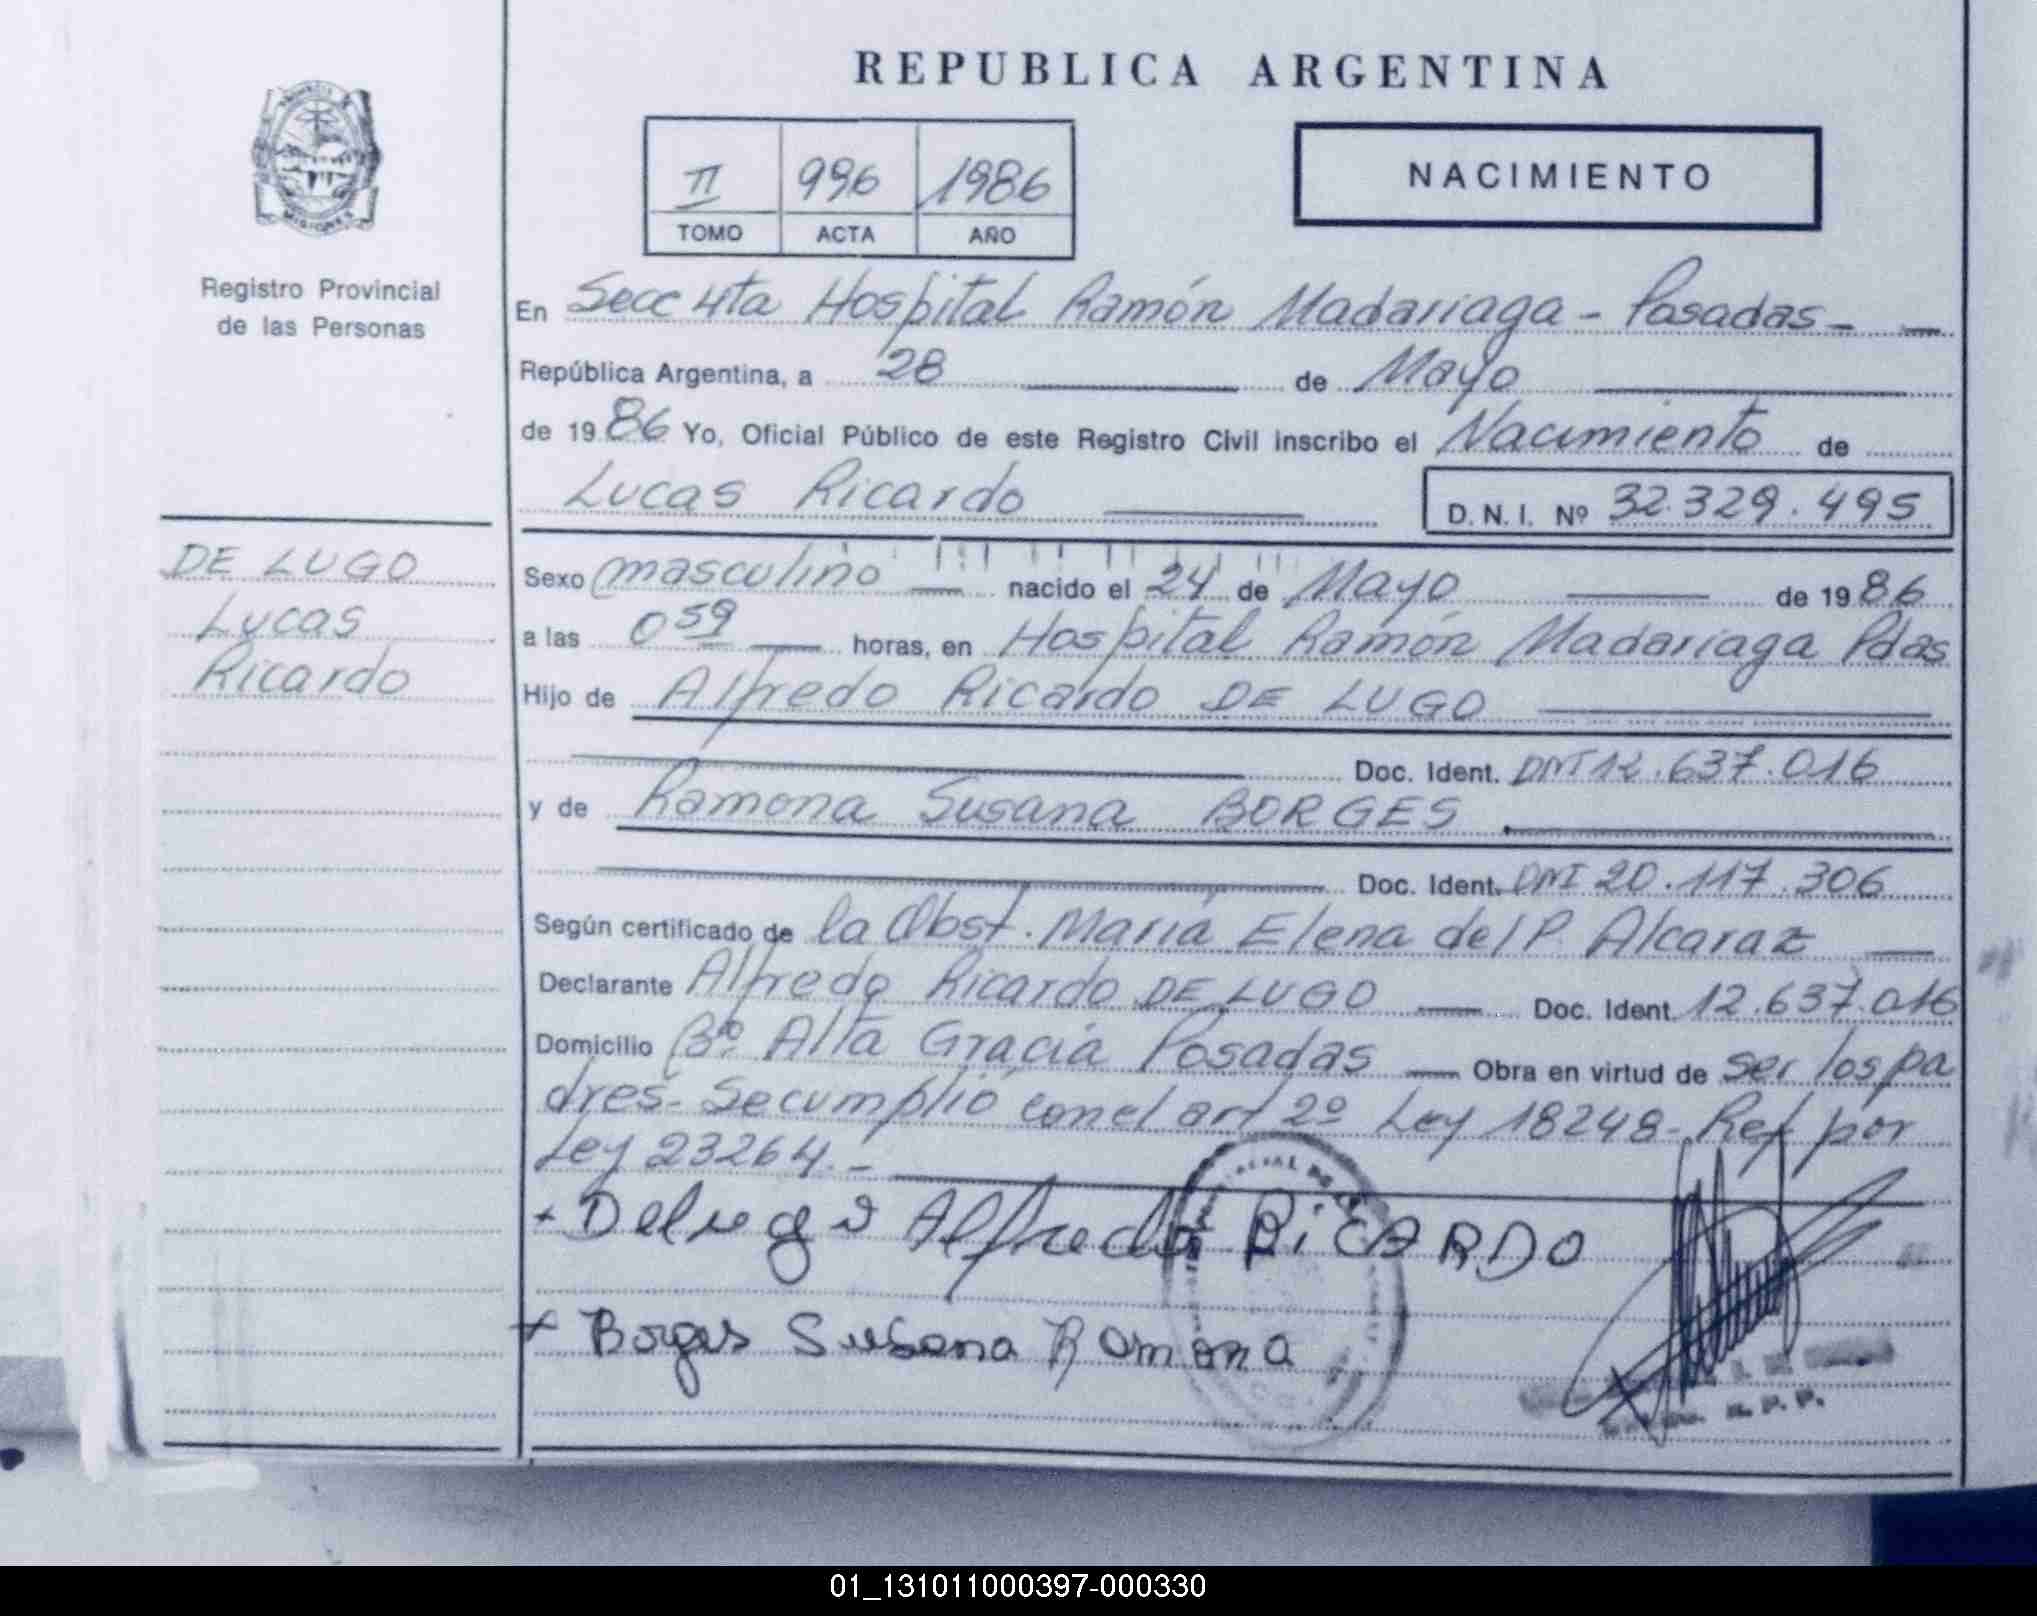 REPUBLICA ARGENTINA
II 996 1986
TOMO ACTA AÑO
NACIMIENTO
MISIONES
Registro Provincial
de las Personas
DE LUGO
Lucas
Ricardo
En Secc 4ta Hospital Ramón Madariaga - Posadas -
República Argentina, a 28 de Mayo
de 1986 Yo, Oficial Público de este Registro Civil inscribo el Nacimiento de
Lucas Ricardo D. N. I. Nº 32.329.495
Sexo masculino nacido el 24 de Mayo de 1986
a las 0 59 horas, en Hospital Ramón Madariaga Pdas
Hijo de Alfredo Ricardo DE LUGO
Doc. Ident. DNI 12.637.016
y de Ramona Susana BORGES
Doc. Ident. DNI 20.117.306
Según certificado de la Obst. María Elena del P. Alcaraz
Declarante Alfredo Ricardo DE LUGO Doc. Ident. 12.637.016
Domicilio Bº Alta Gracia Posadas Obra en virtud de ser los pa
dres.- Se cumplió con el art 2º Ley 18248- Ref por
Ley 23264.-
Delugo Alfredo RiCARDO
Borges Susana Ramona
R. P. P.
01_131011000397-000330